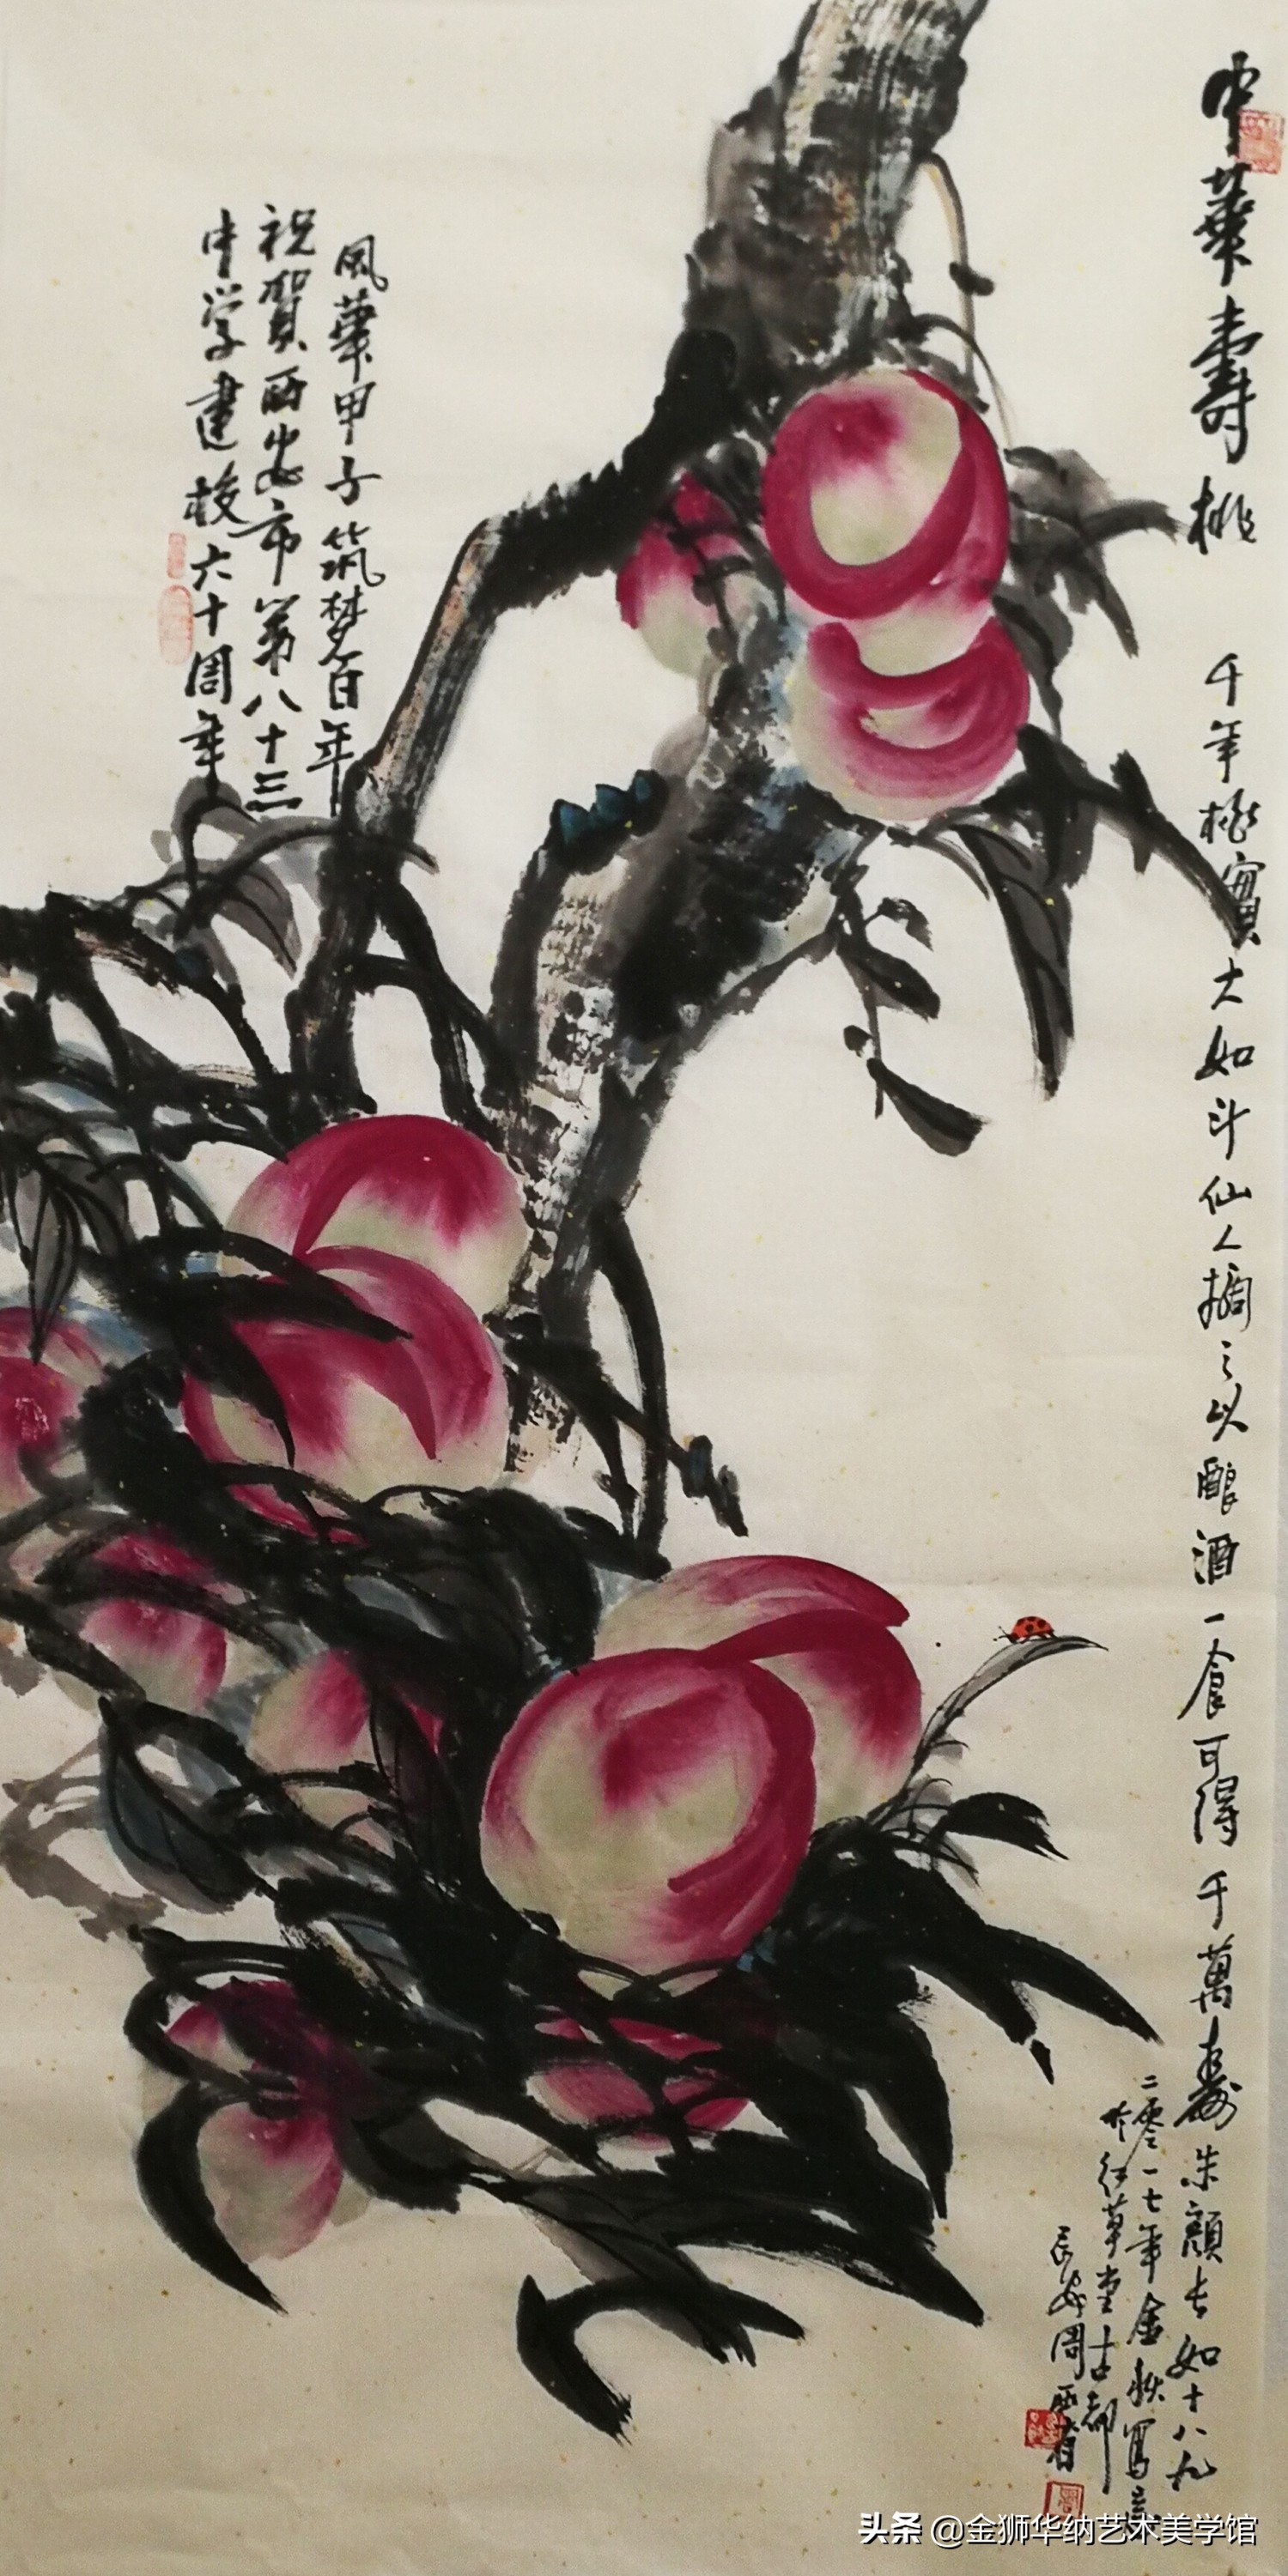 中華壽桃
千年桃實大如斗仙人摘之以釀酒一食可得千萬壽朱顏長如十八九
二零一七年金秋寫於
紅草堂古都
長安周西
風華甲子筑梦百年
祝贺西安市第八十三
中学建校六十周年
头条 @金狮华纳艺术美学馆